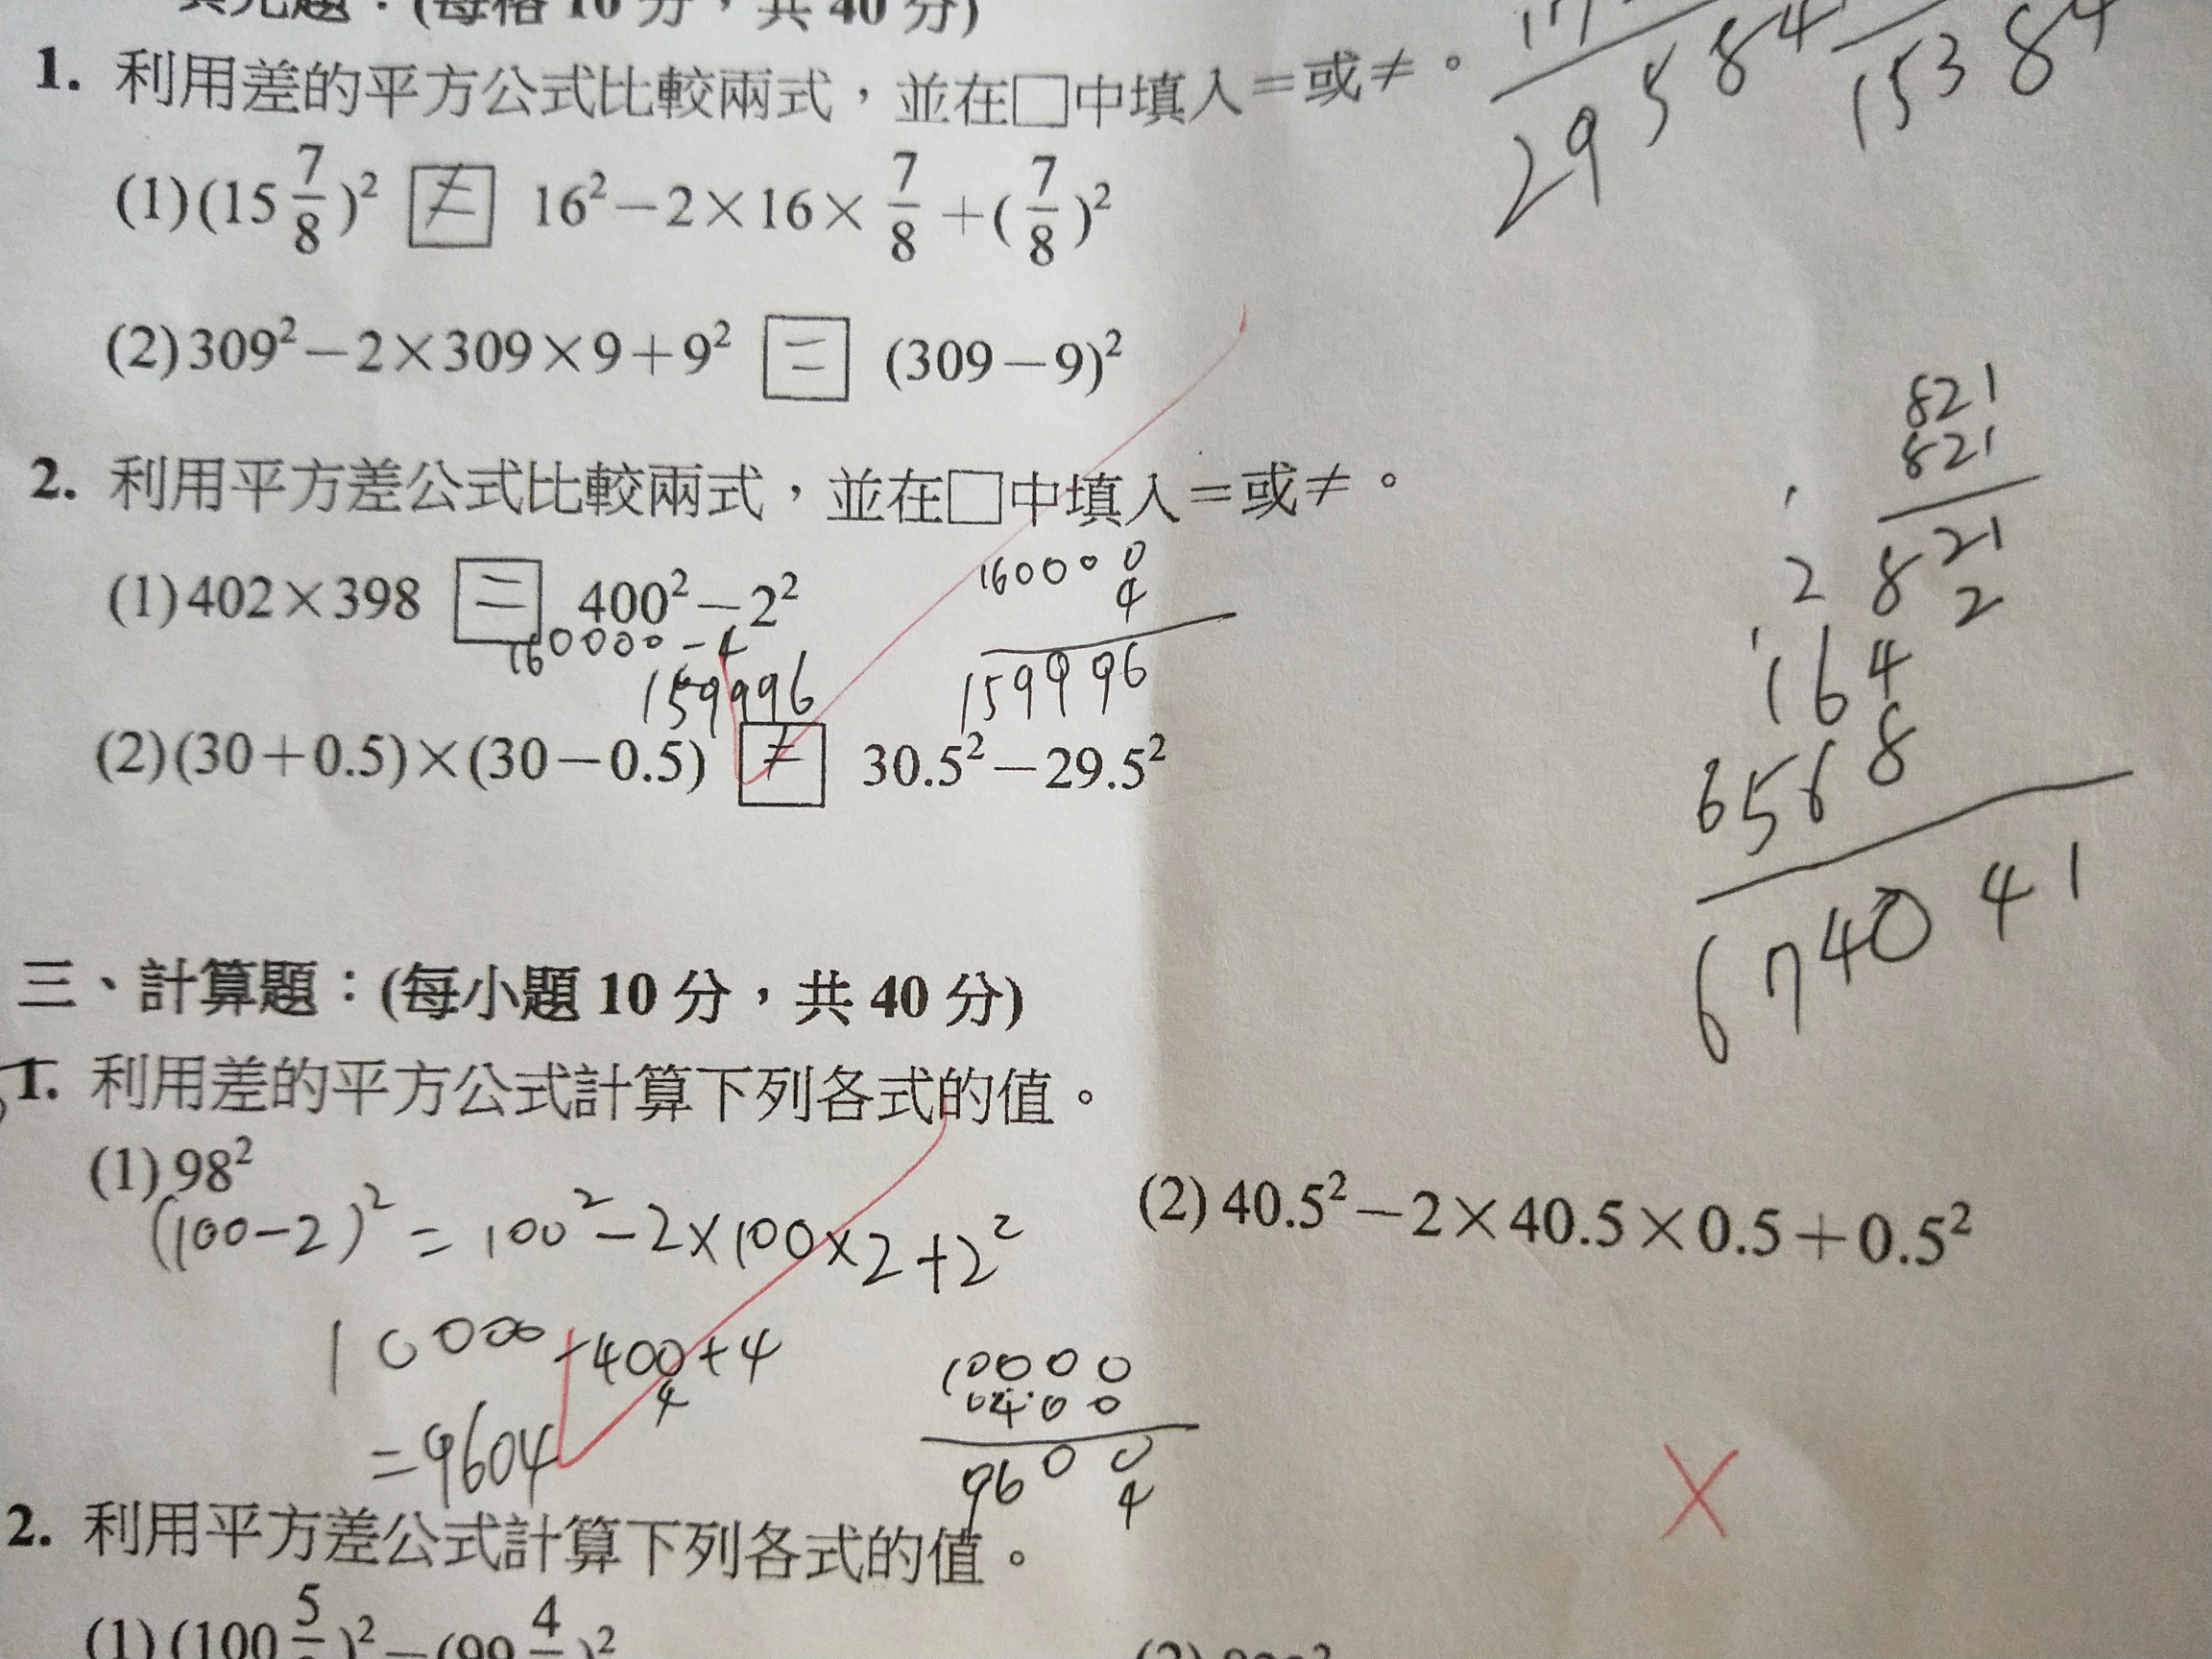 填充題：(每格 10 分，共 40 分)
1. 利用差的平方公式比較兩式，並在□中填入＝或≠。
(1)(15 7/8)² ≠ 16²－2×16× 7/8 ＋( 7/8 )²
(2)309²－2×309×9＋9² = (309－9)²
2. 利用平方差公式比較兩式，並在□中填入＝或≠。
(1)402×398 = 400²－2²
160000 - 4
159996
160000
4
159996
(2)(30＋0.5)×(30－0.5) ≠ 30.5²－29.5²
29584
15384
821
821
821
2
164
6568
674041
三、計算題：(每小題 10 分，共 40 分)
1. 利用差的平方公式計算下列各式的值。
(1)98²
(100-2)² = 100²-2×100×2+2²
10000-400+4
4
=9604
10000
0400
9600
4
(2)40.5²－2×40.5×0.5＋0.5²
2. 利用平方差公式計算下列各式的值。